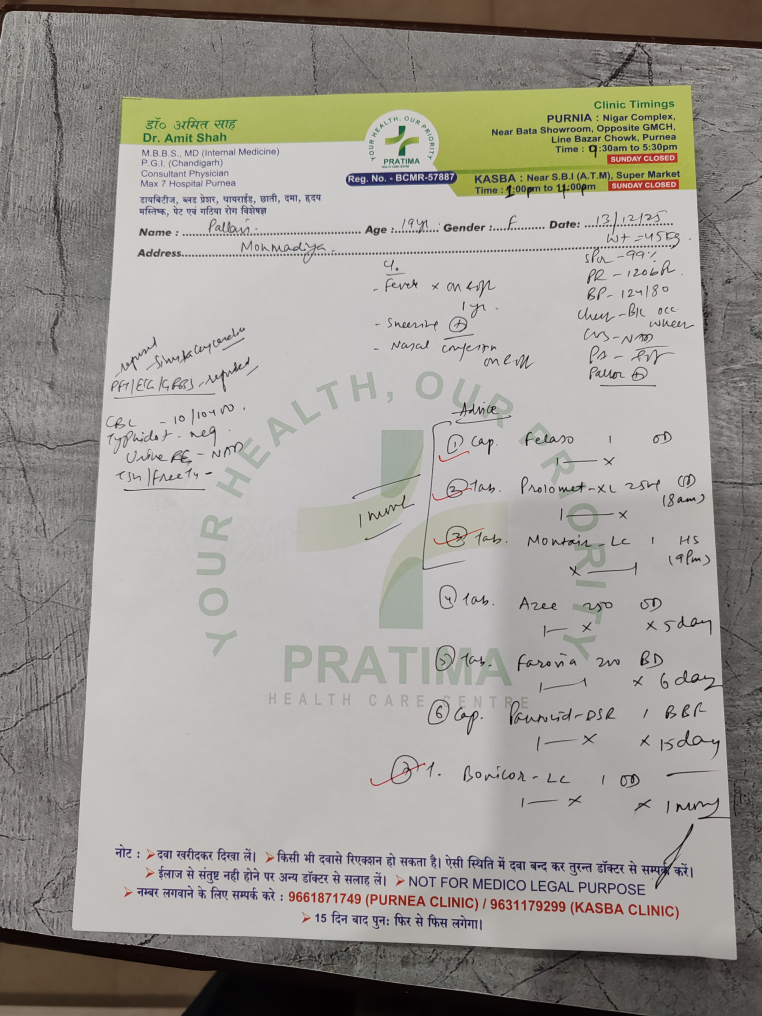 डॉ० अमित साह
Dr. Amit Shah
M.B.B.S., MD (Internal Medicine)
P.G.I. (Chandigarh)
Consultant Physician
Max 7 Hospital Purnea
डायबिटीज, ब्लड प्रेशर, थायराईड, छाती, दमा, हृदय
मस्तिष्क, पेट एवं गठिया रोग विशेषज्ञ
YOUR HEALTH, OUR PRIORITY
PRATIMA
HEALTH CARE CENTRE
Reg. No. - BCMR-57887
Clinic Timings
PURNIA : Nigar Complex,
Near Bata Showroom, Opposite GMCH,
Line Bazar Chowk, Purnea
Time : 9:30am to 5:30pm
SUNDAY CLOSED
KASBA : Near S.B.I (A.T.M), Super Market
Time : :00pm to :00pm SUNDAY CLOSED
Name : Pallavi Age : 19yr Gender : F Date: 13/12/25
Address Mohmadiya
Wt = 45kg
SPO2 - 99%
PR - 120bpm
BP - 124/80
Chest - B/L occ
wheeze
CVS - NAD
PA - soft
Pallor +
- Fever x on & off
1 yr.
- Sneezing +
- Nasal congestion
on & off
PFT/ECG/GRBS - reported
CBC - 10/10400
Typhidot - neg
Urine RE - NAD
TSH/Free T4 -
Advice
1 Cap. Felaso 1 OD
1 — x
2 Tab. Prolomet-XL 25mg OD
(8am)
1 — x
3 Tab. Montair-LC 1 HS
(9pm)
x — 1
4 Tab. Azee 250 OD
1 — x x 5 day
5 Tab. Faronia 200 BD
1 — 1 x 6 day
6 Cap. DSR 1 BBF
1 — x x 15 day
7 T. Bonicor-LC 1 OD
1 — x x 1 month
1 month
YOUR HEALTH, OUR PRIORITY
PRATIMA
HEALTH CARE CENTRE
नोट : ➤ दवा खरीदकर दिखा लें। ➤ किसी भी दवासे रिएक्शन हो सकता है। ऐसी स्थिति में दवा बन्द कर तुरन्त डॉक्टर से सम्पर्क करें।
➤ ईलाज से संतुष्ट नही होने पर अन्य डॉक्टर से सलाह लें। ➤ NOT FOR MEDICO LEGAL PURPOSE
➤ नम्बर लगवाने के लिए सम्पर्क करे : 9661871749 (PURNEA CLINIC) / 9631179299 (KASBA CLINIC)
➤ 15 दिन बाद पुनः फिर से फिस लगेगा।